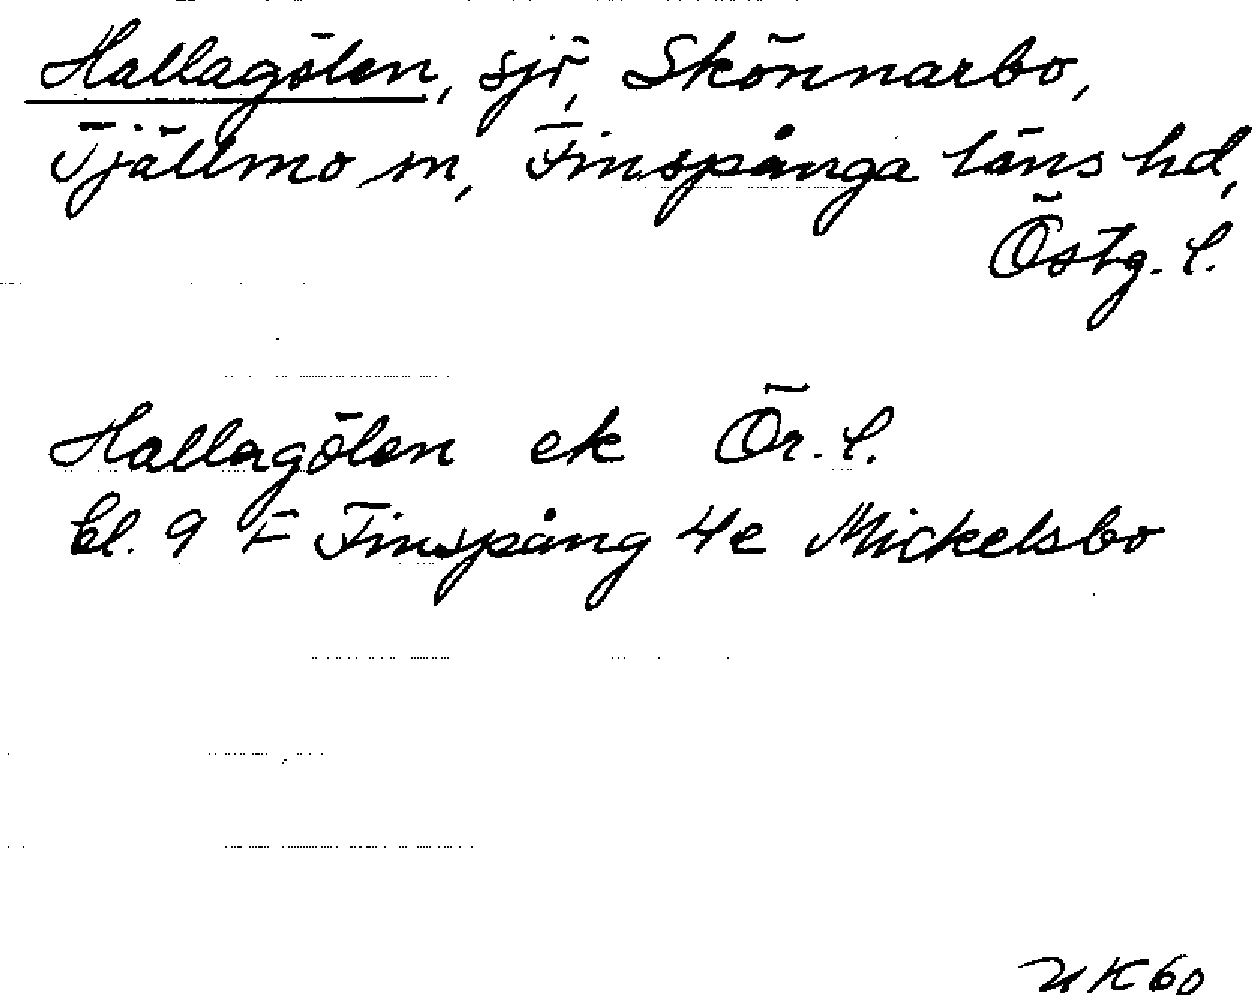 Hallagölen, sjö, Skönnarbo,
Tjällmo sn, Finspånga läns hd,
Östg. l.
Hallagölen ek Ör. l.
bl. 9 F Finspång 4e Mickelsbo
HK 60